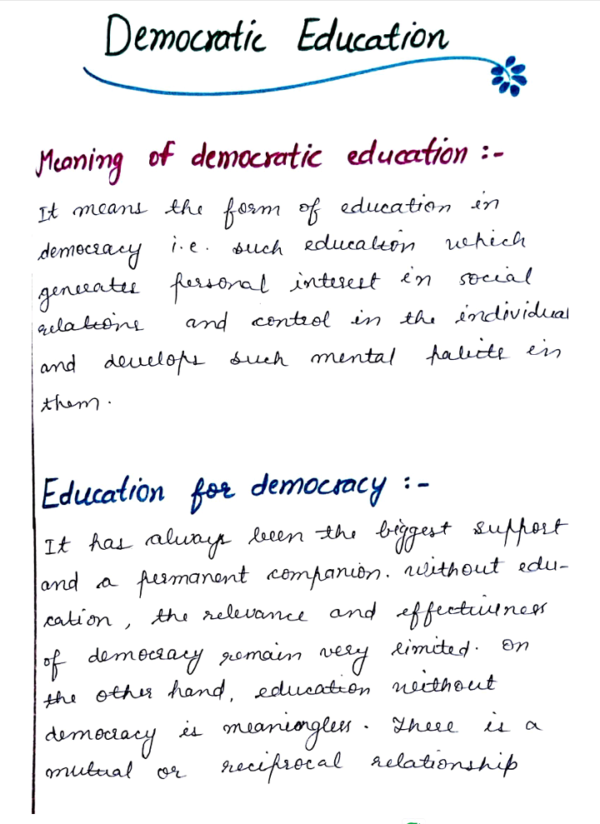 Democratic Education
Meaning of democratic education :-
It means the form of education in
democracy i.e. such education which
generates personal interest in social
relations and control in the individual
and develops such mental habits in
them.
Education for democracy :-
It has always been the biggest support
and a permanent companion. without edu-
cation, the relevance and effectiveness
of democracy remain very limited. on
the other hand, education without
democracy is meaningless. There is a
mutual or reciprocal relationship